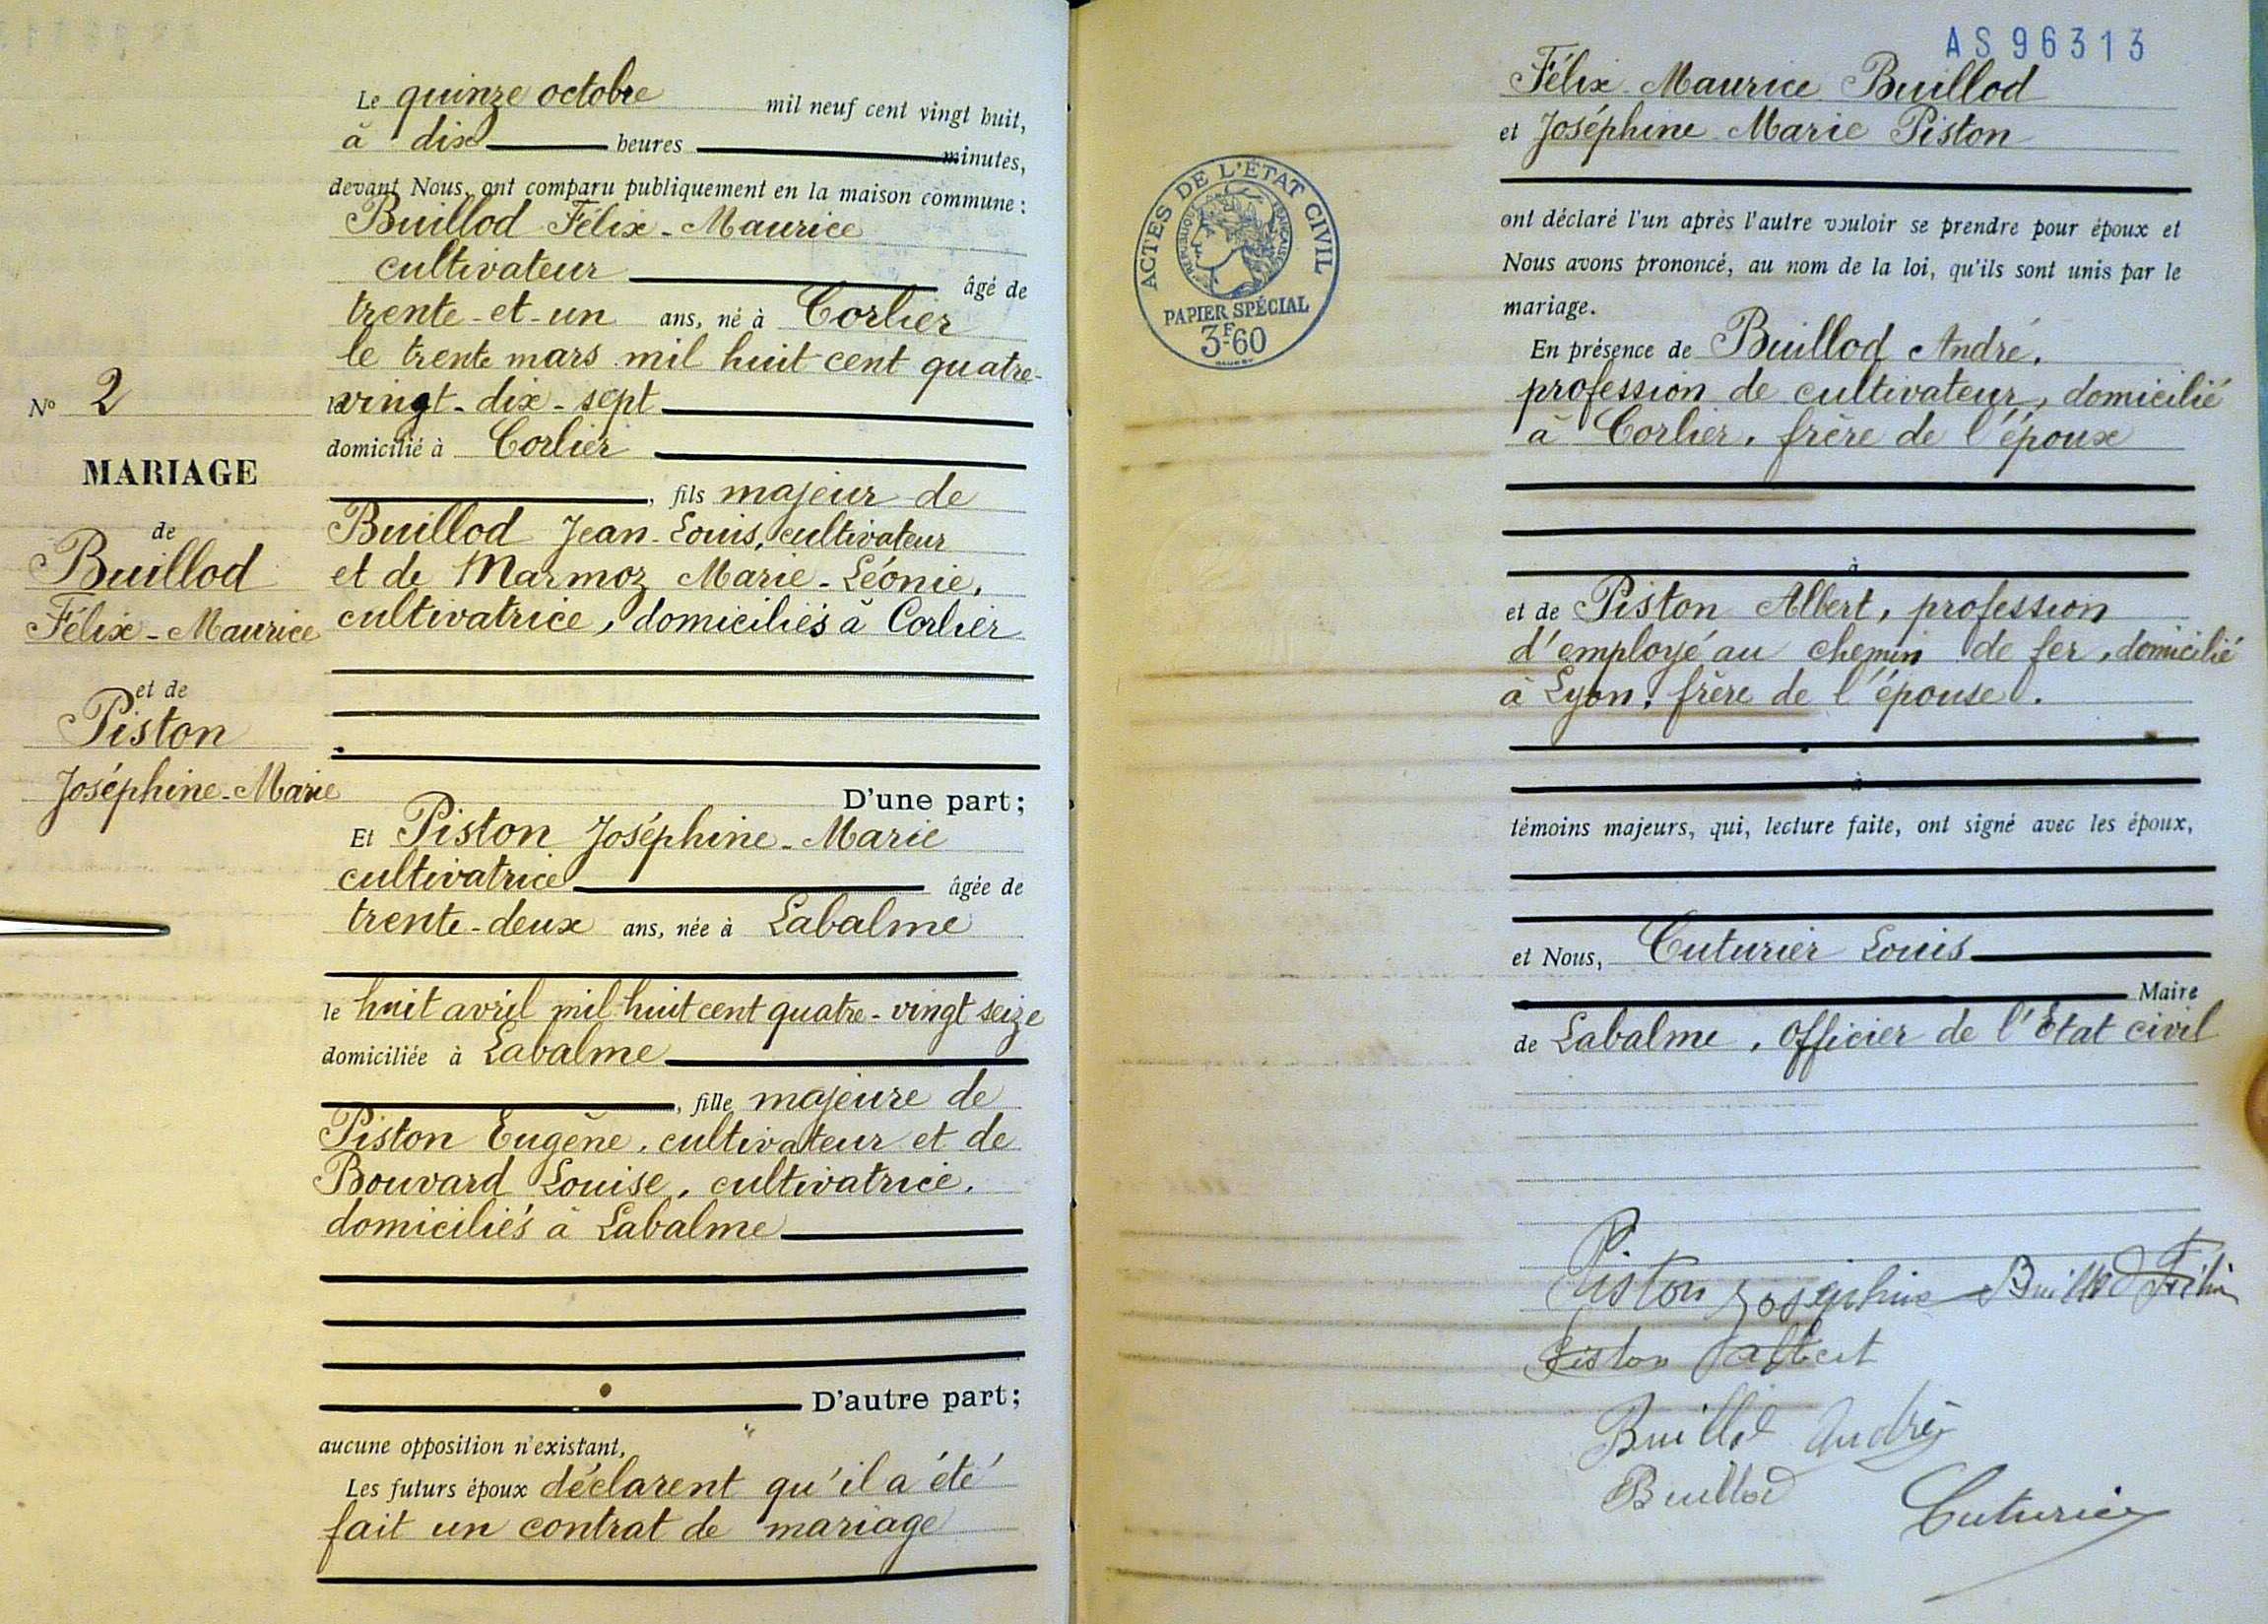 N° 2
MARIAGE
de
Buillod
Félix-Maurice
et de
Piston
Joséphine-Marie
Le quinze octobre mil neuf cent vingt huit,
à dix heures minutes,
devant Nous, ont comparu publiquement en la maison commune :
Buillod Félix-Maurice
cultivateur âgé de
trente-et-un ans, né à Corlier
le trente mars mil huit cent quatre-
vingt-dix-sept
domicilié à Corlier
, fils majeur de
Buillod Jean-Louis, cultivateur
et de Marmoz Marie-Léonie,
cultivatrice, domiciliés à Corlier
D'une part;
Et Piston Joséphine-Marie
cultivatrice âgée de
trente-deux ans, née à Labalme
le huit avril mil huit cent quatre-vingt seize
domiciliée à Labalme
, fille majeure de
Piston Eugène, cultivateur et de
Bouvard Louise, cultivatrice,
domiciliés à Labalme
D'autre part;
aucune opposition n'existant,
Les futurs époux déclarent qu'il a été
fait un contrat de mariage
AS96313
ACTES DE L'ÉTAT CIVIL
RÉPUBLIQUE FRANÇAISE
PAPIER SPÉCIAL
3F60
Félix Maurice Buillod
et Joséphine Marie Piston
ont déclaré l'un après l'autre vouloir se prendre pour époux et
Nous avons prononcé, au nom de la loi, qu'ils sont unis par le
mariage.
En présence de Buillod André,
profession de cultivateur, domicilié
à Corlier, frère de l'époux
à
et de Piston Albert, profession
d'employé au chemin de fer, domicilié
à Lyon, frère de l'épouse.
à
témoins majeurs, qui, lecture faite, ont signé avec les époux,
et Nous, Cuturier Louis
Maire
de Labalme, Officier de l'Etat civil
Piston Joséphine Buillod Félix
Piston Albert
Buillod André
Buillod Cuturier